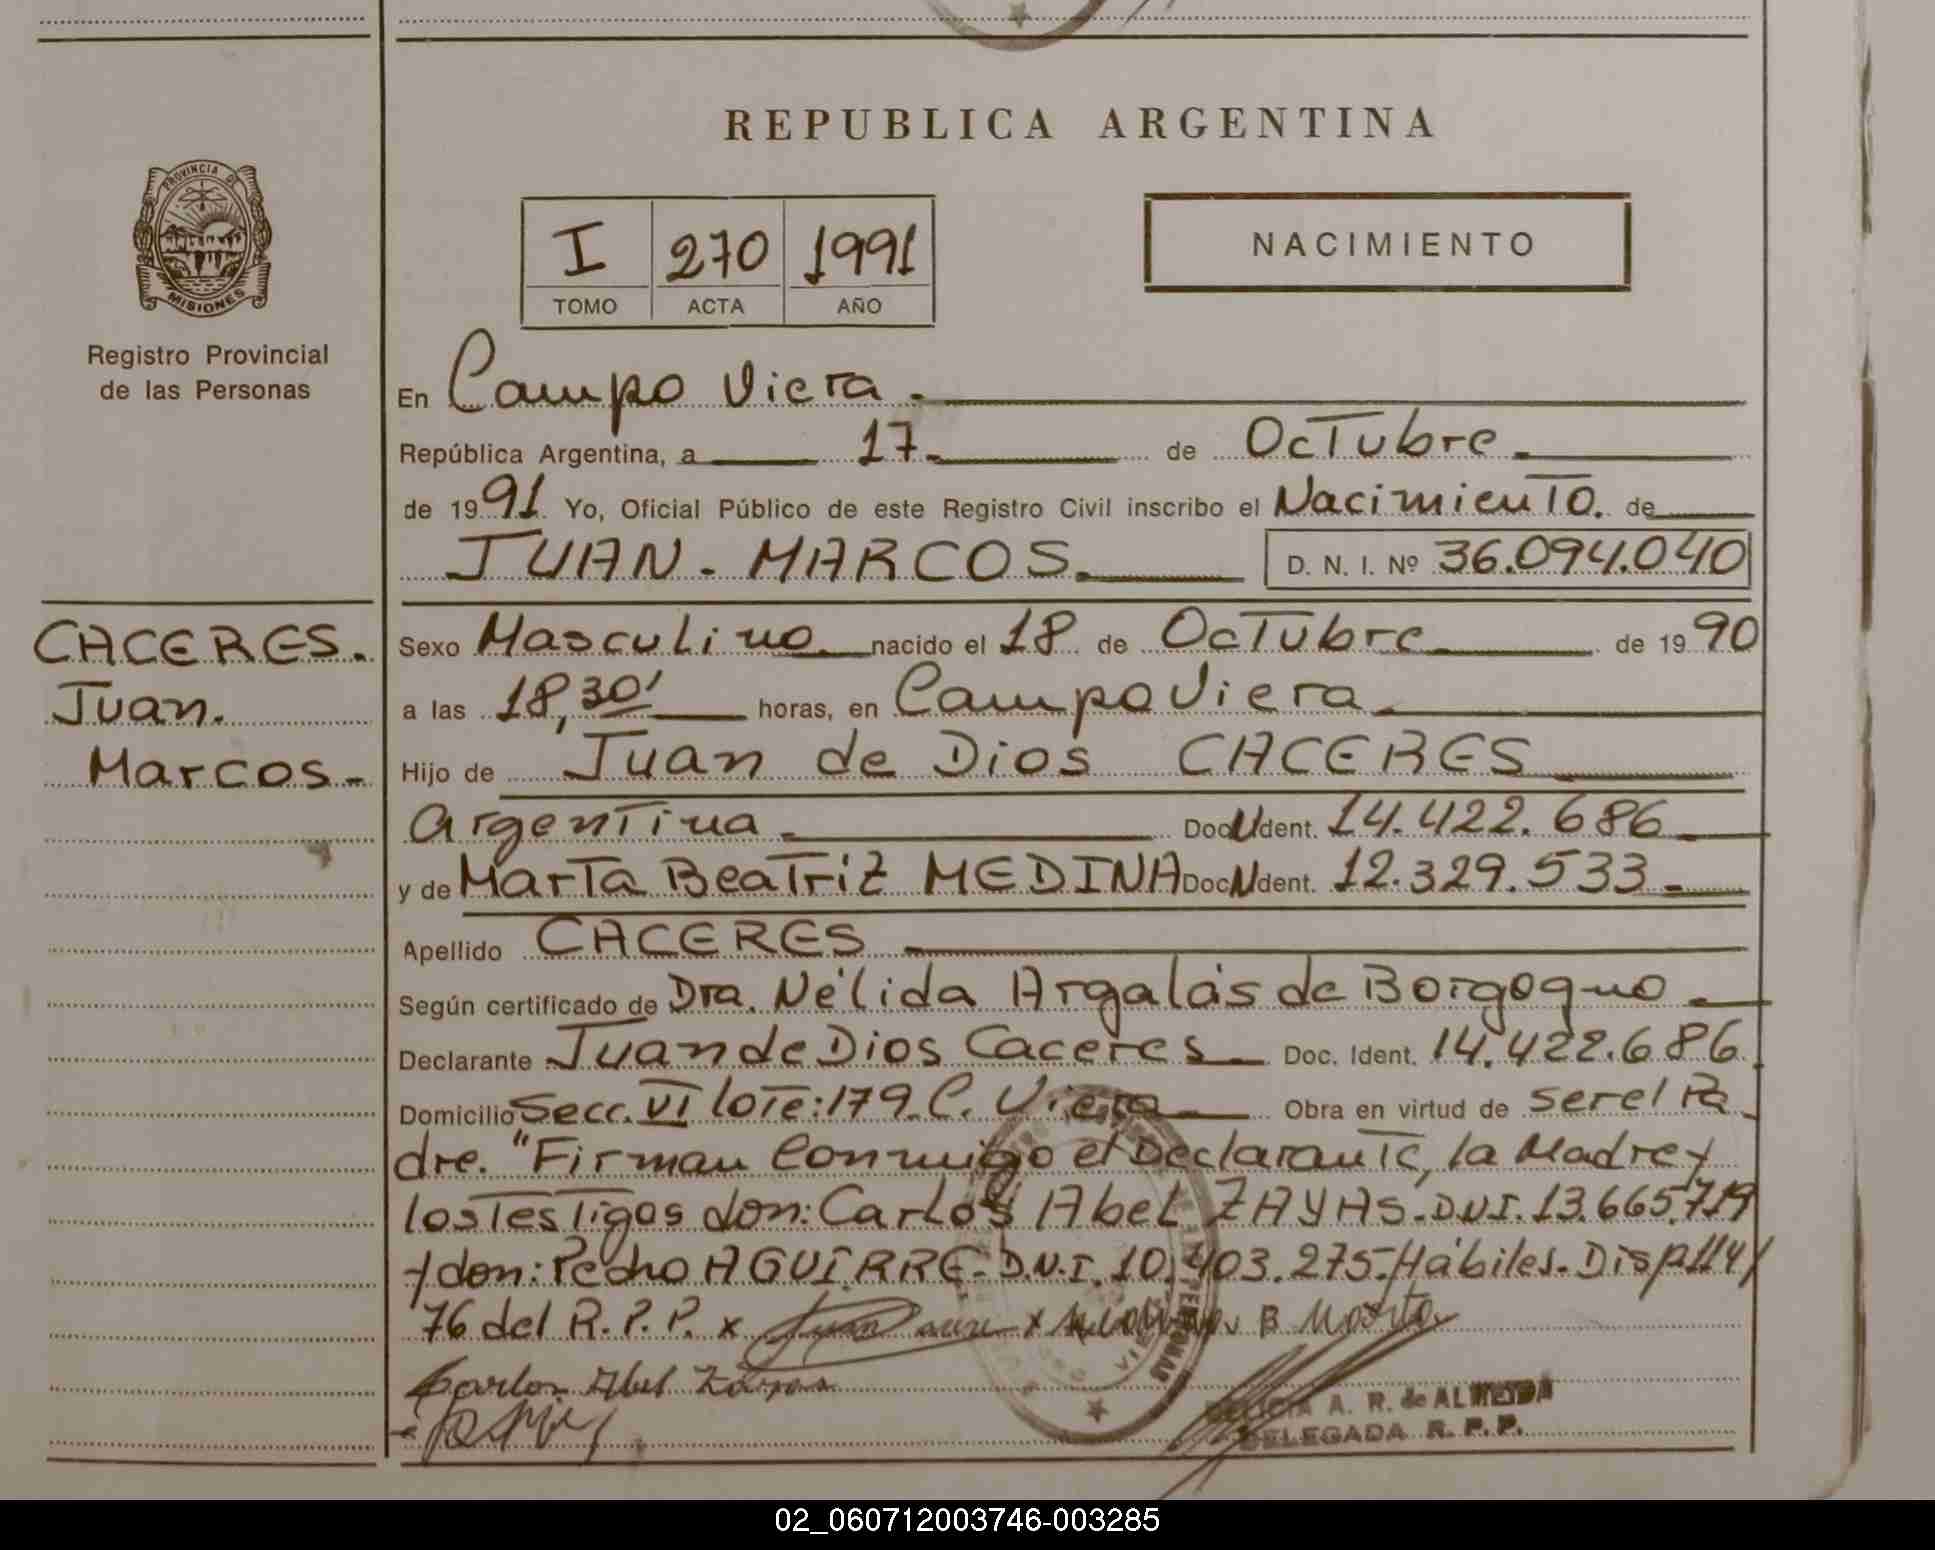 REPUBLICA ARGENTINA
PROVINCIA DE
MISIONES
Registro Provincial
de las Personas
I 270 1991
TOMO ACTA AÑO
NACIMIENTO
En Campo Viera.
República Argentina, a 17. de OcTubre.
de 1991 Yo, Oficial Público de este Registro Civil inscribo el NacimienTo. de
JUAN. MARCOS. D. N. I. Nº 36.094.040
CACERES.
Juan.
Marcos.
Sexo Masculino. nacido el 18 de OcTubre de 1990
a las 18,30' horas, en Campo Viera.
Hijo de Juan de Dios CACERES
ArgenTina. Doc N Ident. 14.422.686
y de MarTa BeaTriz MEDINA Doc N Ident. 12.329.533
Apellido CACERES
Según certificado de Dra. Nélida Argalás de Borgogno
Declarante Juan de Dios Caceres Doc. Ident. 14.422.686
Domicilio Secc. VI loTe:179 C. Viera Obra en virtud de ser el Pa
dre. "Firman conmigo el DeclaranTe, la Madre y
los TesTigos don: Carlos Abel ZAYAS. D.N.I. 13.665.719
y don: Pedro AGUIRRE. D.N.I. 10.403.275. Hábiles. Disp 114/
76 del R. P. P. x
Carlos Abel Zayas
A. R. de ALMEIDA
DELEGADA R. P. P.
02_060712003746-003285